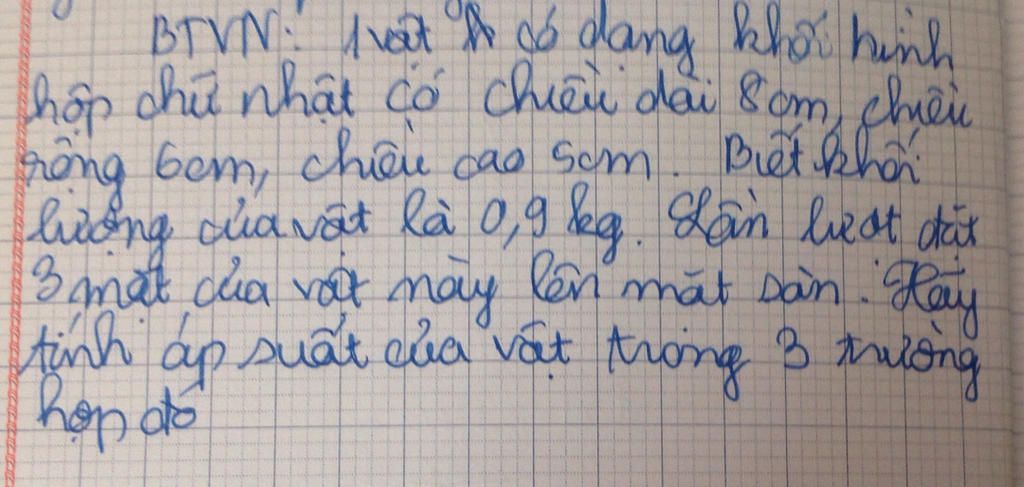 BTVN: 1 vật có dạng khối hình
hộp chữ nhật có chiều dài 8cm, chiều
rộng 6cm, chiều cao 5cm. Biết khối
lượng của vật là 0,9 kg. Lần lượt đặt
3 mặt của vật này lên mặt sàn. Hãy
tính áp suất của vật trong 3 trường
hợp đó